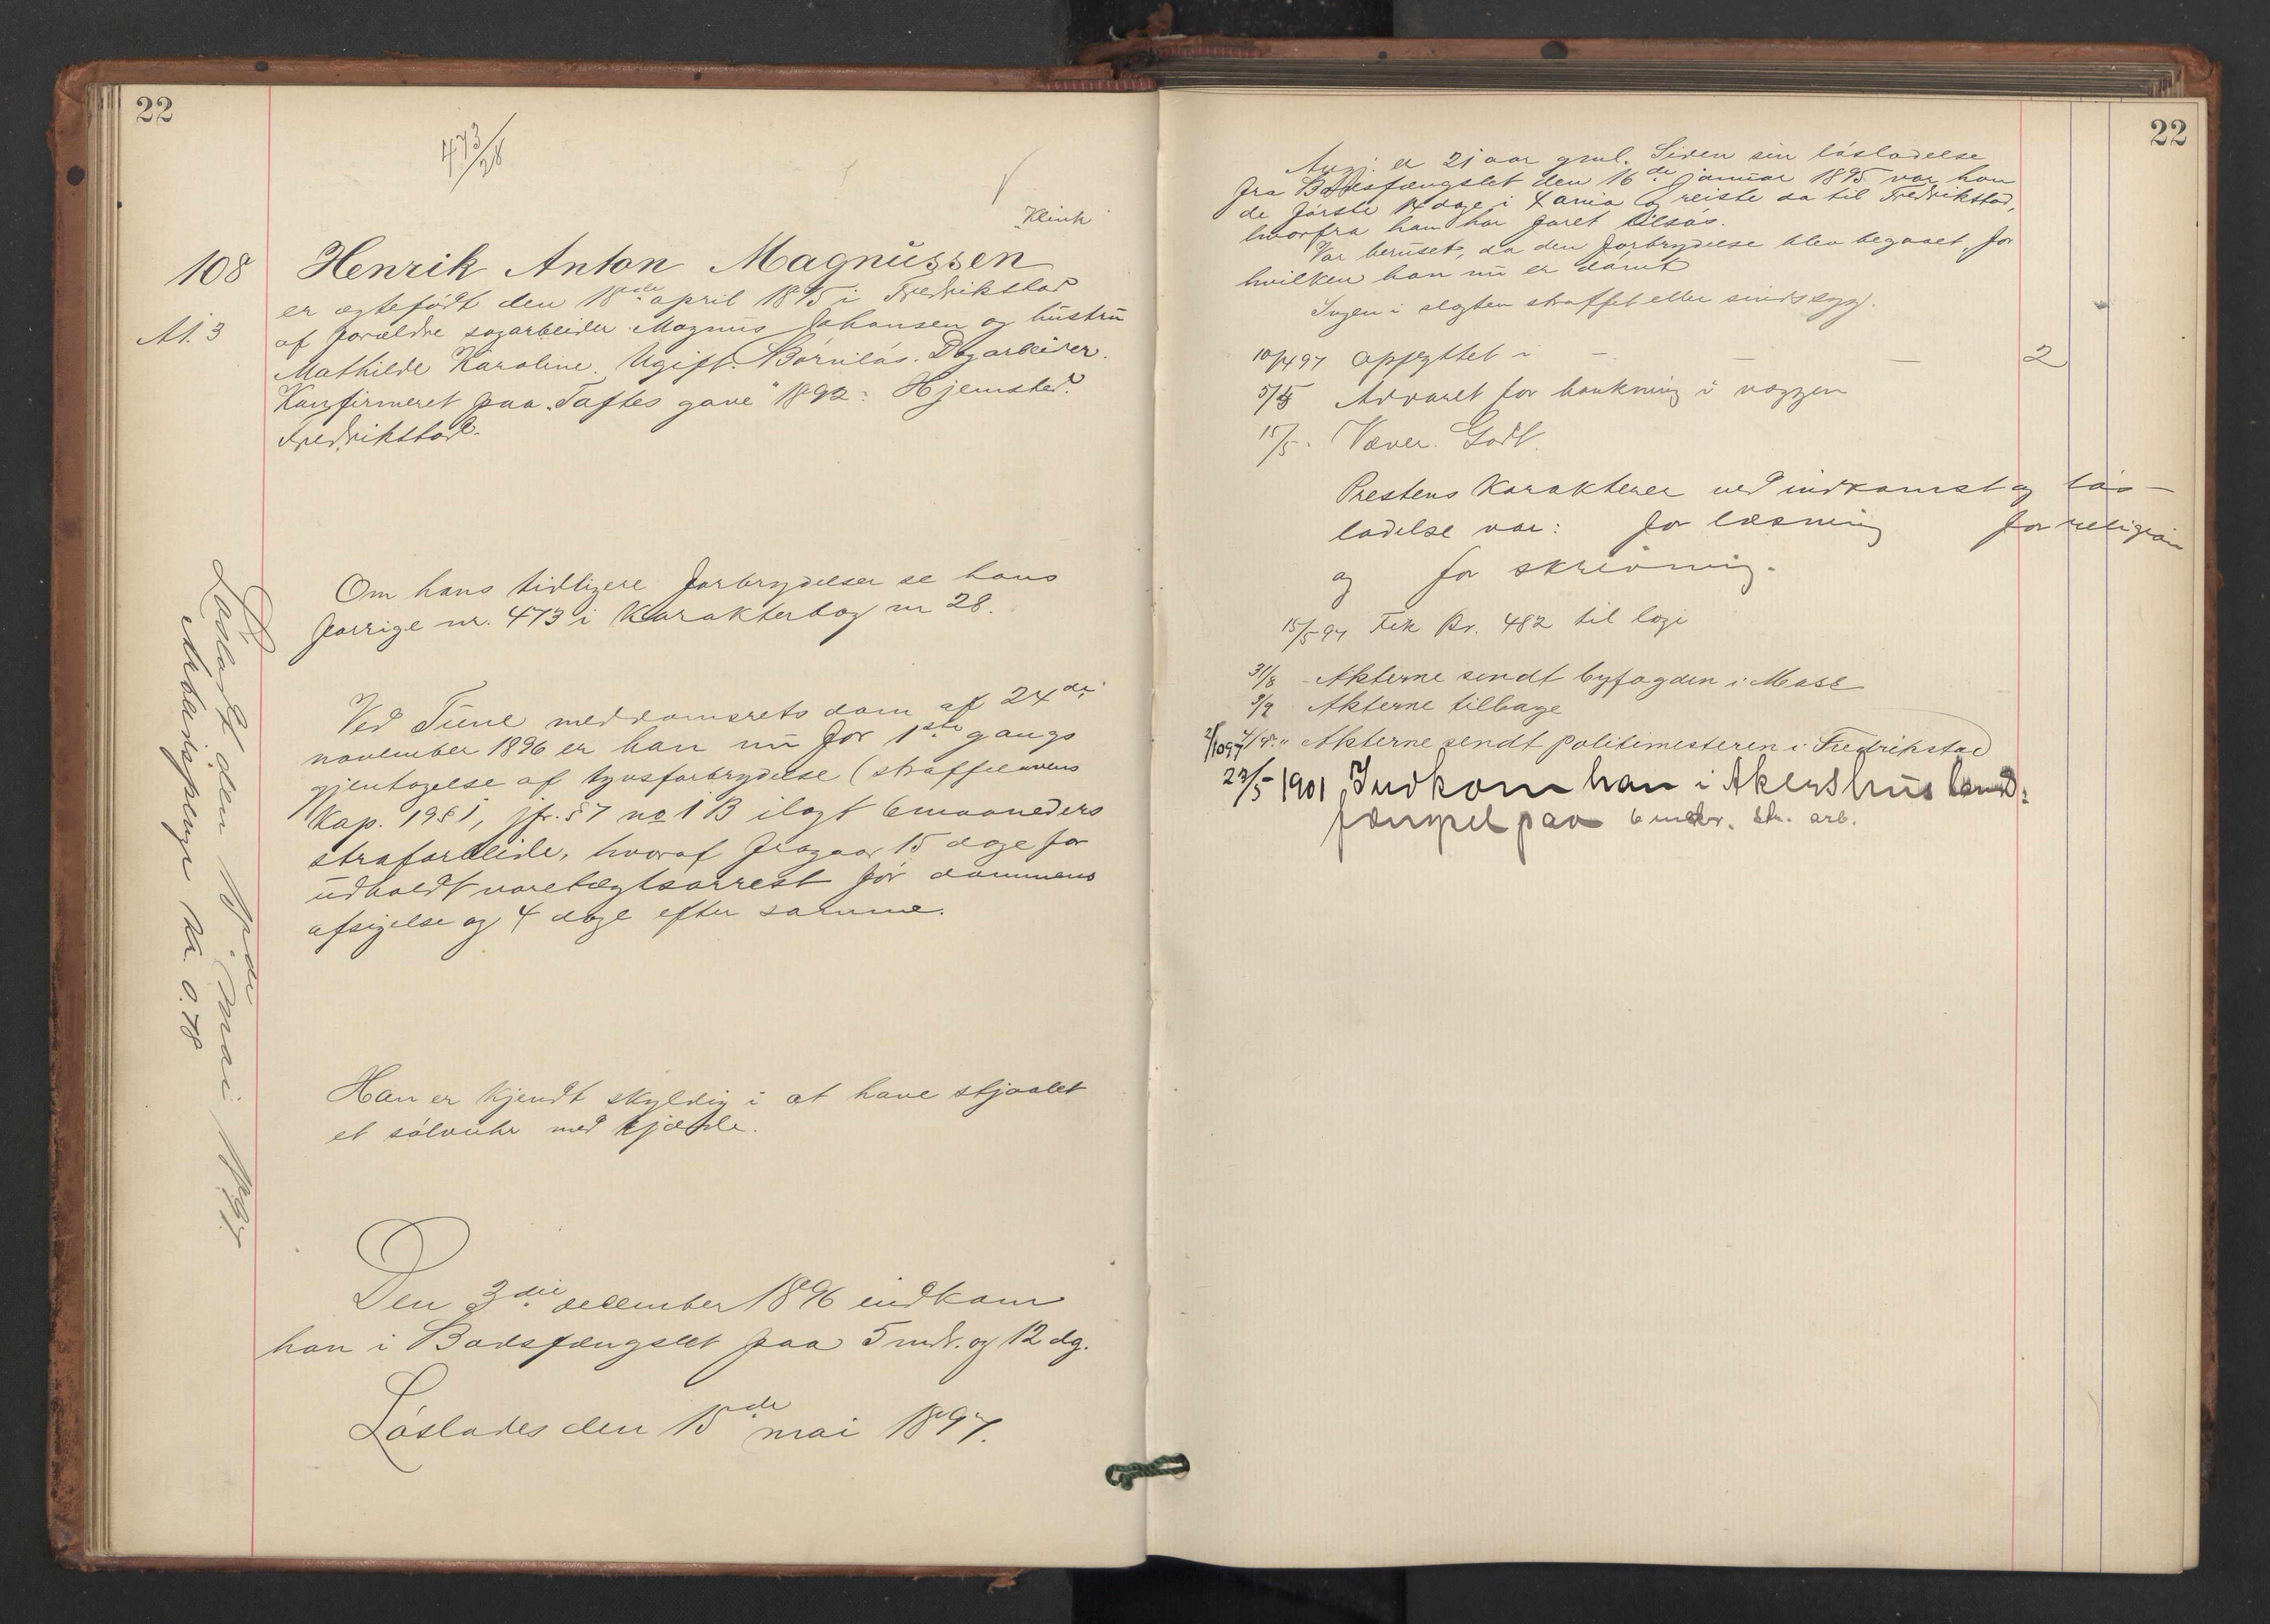 22
473/28
Klink
108
Henrik Anton Magnussen
er ægtefødt den 18de april 1875 i Fredrikstad
At. 3
af forældre sagarbeider Magnus Johansen og hustru
Mathilde Karoline. Ugift. Børnløs. Dagarbeider.
Konfirmeret paa "Toftes gave" 1892. Hjemsted:
Fredrikstad.
Om hans tidligere forbrydelser se hans
forrige nr. 473 i Karakterbog nr 28.
Ved Tune meddomsrets dom af 24de
november 1896 er han nu for 1ste gangs
gjentagelse af tyvsforbrydelse (straffelovens
Kap. 19 § 1, jfr. § 7 no 1 B ilagt 6 maaneders
strafarbeide, hvoraf fragaar 15 dage for
udholdt varetægtsarrest før dommens
afsigelse og 4 dage efter samme.
Han er kjendt skyldig i at have stjaalet
et sølvuhr med kjæde.
Den 3die december 1896 indkom
han i Bodsfængslet paa 5 mdr. og 12 dg.
Løslades den 15de mai 1897.
Løsladt den 15de mai 1897.
Arbeidspenge kr. 0.78
22
Angj. er 21 aar gml. Siden sin løsladelse
fra Bodsfængslet den 16de januar 1895 var han
de første 14 dage i Xania og reiste da til Fredrikstad,
hvorfra han har faret tilsøs.
Var beruset, da den forbrydelse blev begaaet, for
hvilken han nu er dømt
Ingen i slegten straffet eller sindssyg.
10/4 97 Opflyttet i - - - 2
Advaret for bankning i væggen
15/5. Væver. Godt.
Prestens Karakterer ved indkomst og løs-
ladelse var: for læsning for religion
og for skrivning.
15/5 97 Fik Kr. 482 til logi
31/8 Akterne sendt byfogden i Moss
3/9 Akterne tilbage
2/10 97 Akterne sendt politimesteren i Fredrikstad
23/5 1901 Indkom han i Akershus lands-
fængsel paa 6 mdr. str. arb.